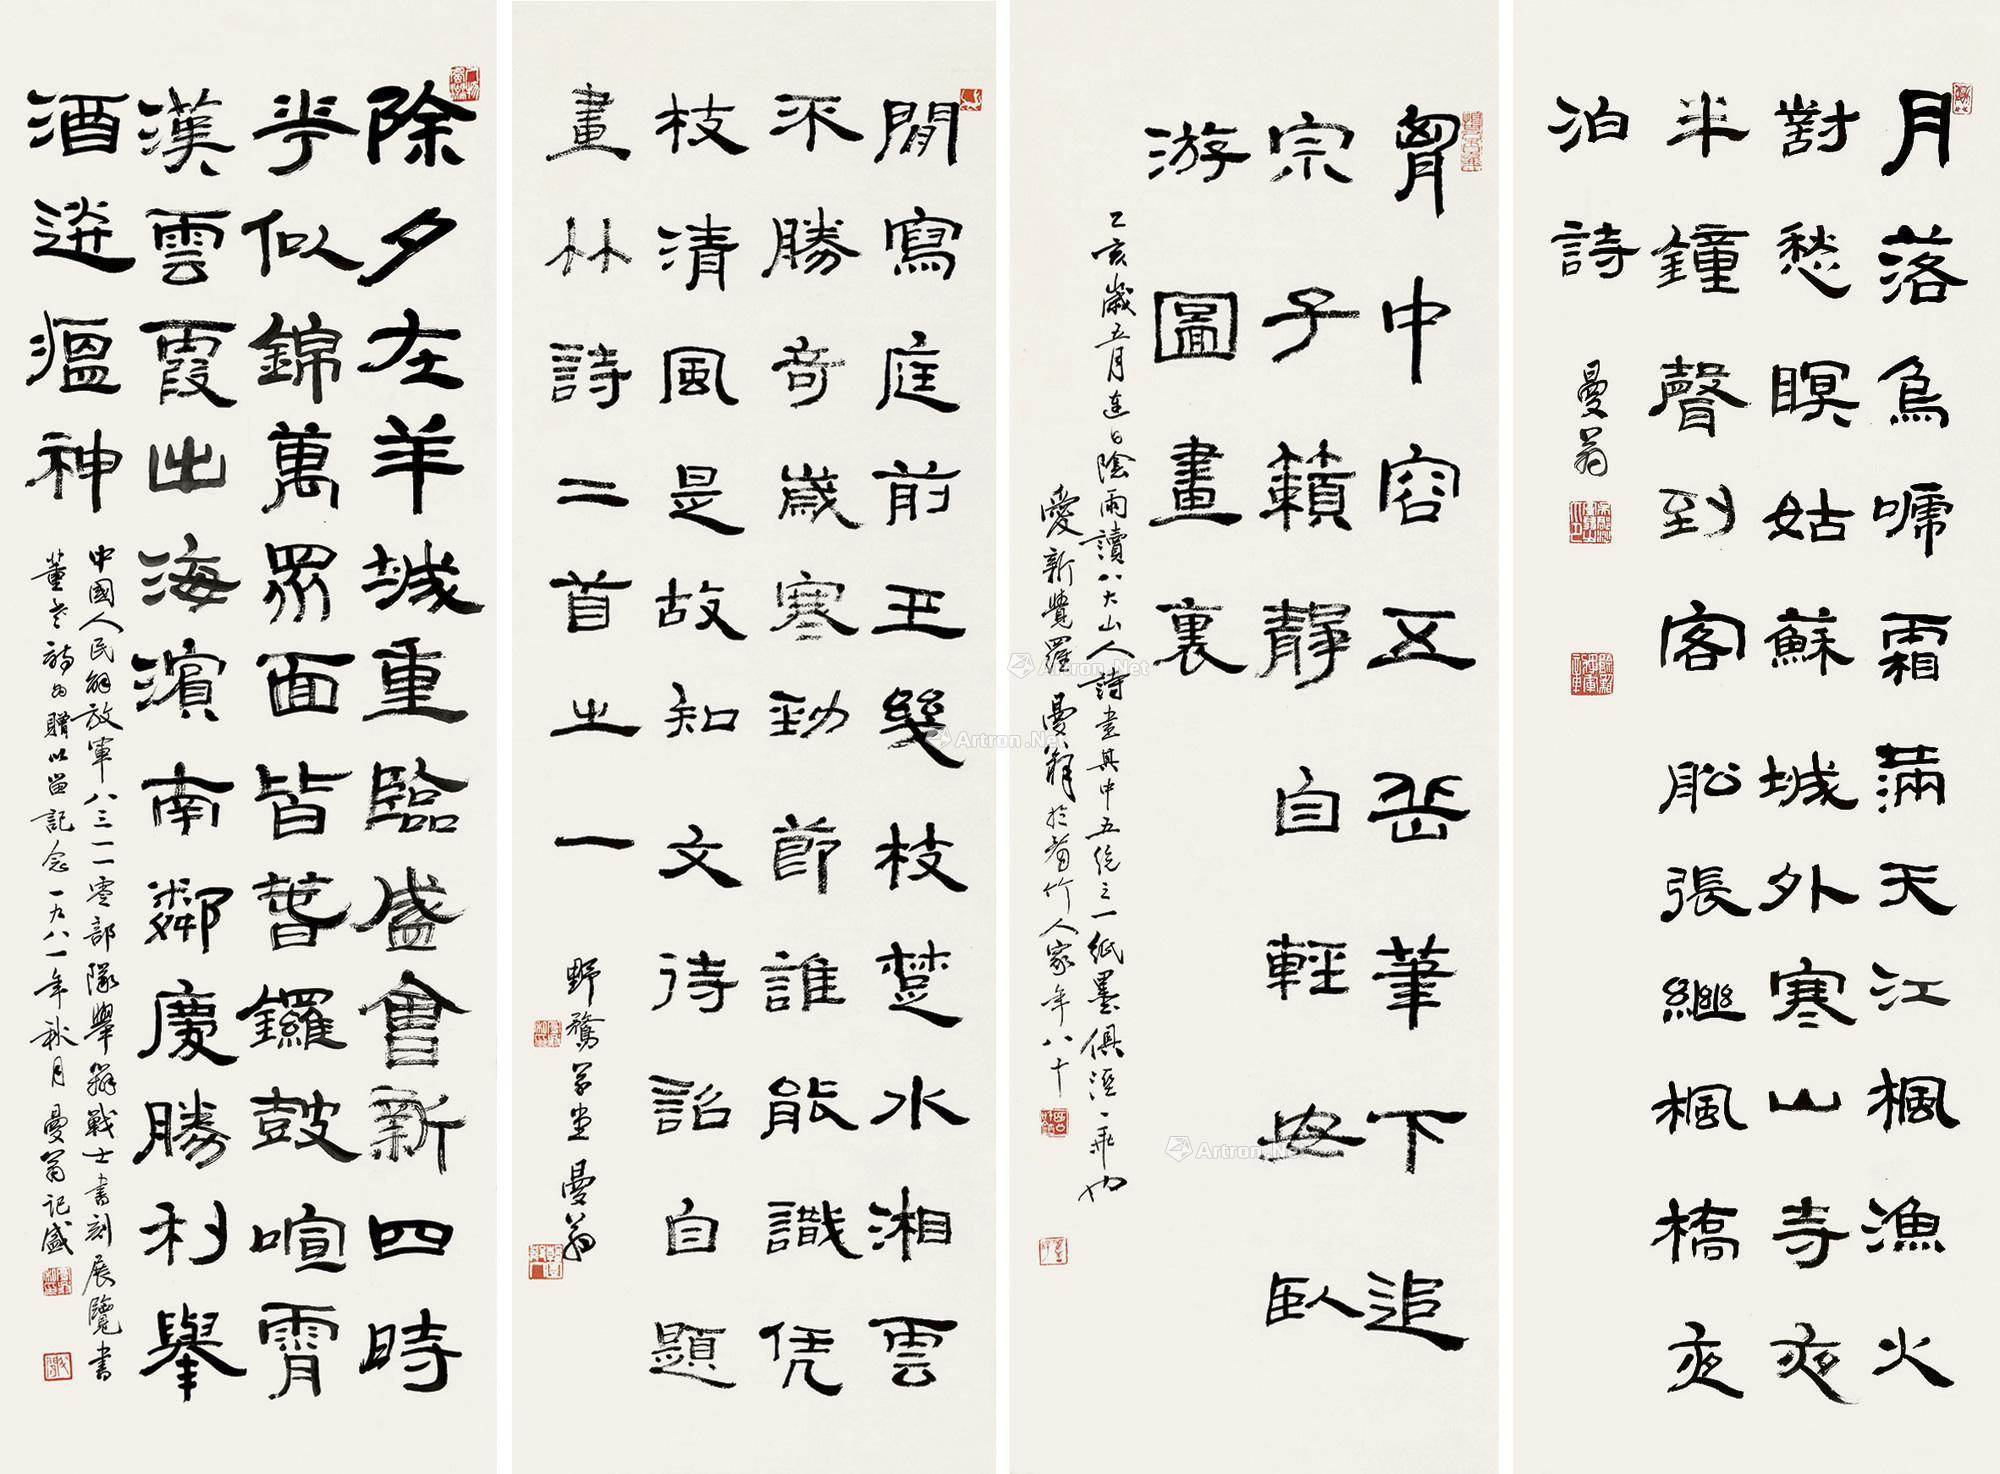 月落烏啼霜滿天江楓漁火
對愁瞑姑蘇城外寒山寺夜
半鐘聲到客船張繼楓橋夜
泊詩
曼翁
胷中容五岳筆下追
宗子籟靜自輕安臥
游圖畫裏
乙亥歲五月連日陰雨讀八大山人詩畫其中五絕之一紙墨俱
愛新覺羅曼翁於看竹人家年八十
閒寫庭前玉幾枝楚水湘雲
不勝奇歲寒勁節誰能識凭
枝清風是故知文待詔自題
畫竹詩二首之一
野鶩草堂曼翁
除夕在羊城重臨盛會新四時
花似錦萬眾面皆春鑼鼓喧霄
漢雲霞出海濱南鄰慶勝利舉
酒送瘟神
中國人民解放軍八三一一零部隊舉辦戰士書刻展覽書
董老詩為贈以留記念一九八一年秋月曼翁記盛
Artron.Net
Artron.Net
Artron.Net